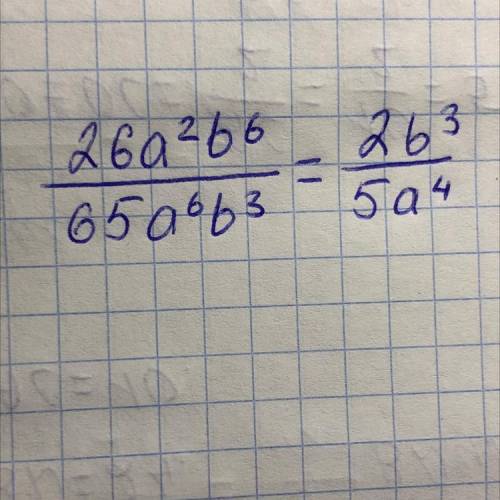 26a²b⁶/65a⁶b³ = 2b³/5a⁴